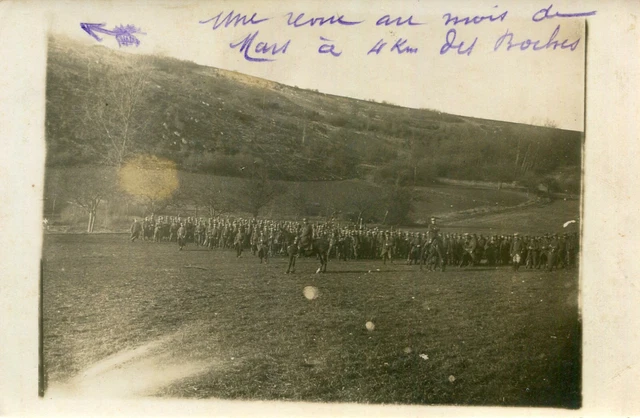 Une revue au mois de
Mars à 4 Km des Boches